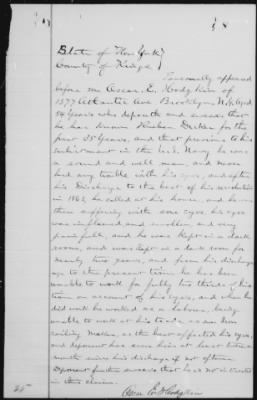 State of New York
County of Kings
Personally appeared
before me Oscar E. Hodgkin of
1577 Atlantic Ave Brooklyn N.Y. aged
54 years who deposeth and swears that
he has known Decker for the
past 35 years, and that previous to his
enlistment in the U.S. Navy he was
a sound and well man, and never
had any trouble with his eyes, and after
his Discharge to the best of his recollection
in 1863 he called at his house, and he was
there suffering with sore eyes, his eyes
was inflamed and swollen and very
painfull, and he was kept in a dark
room, and was kept in a dark room for
nearly two years, and from his discharge
up to the present time he has been
unable to work for fully two thirds of his
time on account of his eyes, and when he
did work he worked as a laborer, being
unable to work at his trade as a
maker, as the heat affected his eyes,
and deponent has seen him at least twice a
month since his discharge if not oftener
Deponent further swears that he is not interested
in this claim.
Oscar E. Hodgkin